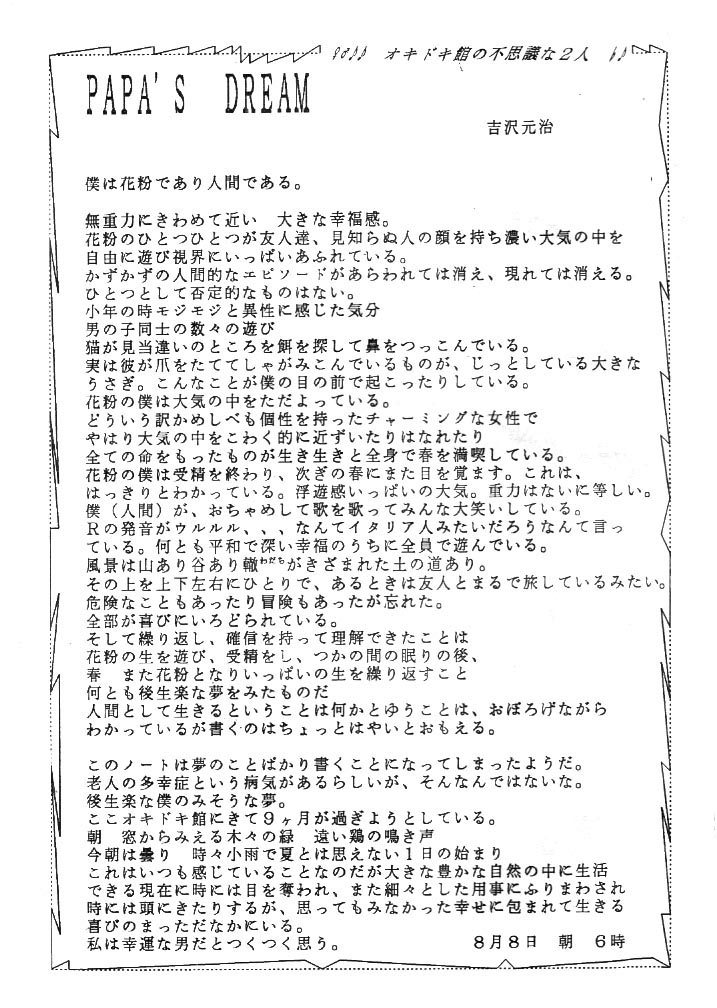 オキドキ館の不思議な2人
PAPA'S DREAM
吉沢元治
僕は花粉であり人間である。
無重力にきわめて近い 大きな幸福感。
花粉のひとつひとつが友人達、見知らぬ人の顔を持ち濃い大気の中を
自由に遊び視界にいっぱいあふれている。
かずかずの人間的なエピソードがあらわれては消え、現れては消える。
ひとつとして否定的なものはない。
小年の時モジモジと異性に感じた気分
男の子同士の数々の遊び
猫が見当違いのところを餌を探して鼻をつっこんでいる。
実は彼が爪をたててしゃがみこんでいるものが、じっとしている大きな
うさぎ。こんなことが僕の目の前で起こったりしている。
花粉の僕は大気の中をただよっている。
どういう訳かめしべも個性を持ったチャーミングな女性で
やはり大気の中をこわく的に近ずいたりはなれたり
全ての命をもったものが生き生きと全身で春を満喫している。
花粉の僕は受精を終わり、次ぎの春にまた目を覚ます。これは、
はっきりとわかっている。浮遊感いっぱいの大気。重力はないに等しい。
僕（人間）が、おちゃめして歌を歌ってみんな大笑いしている。
Rの発音がウルルル、、、なんてイタリア人みたいだろうなんて言っ
ている。何とも平和で深い幸福のうちに全員で遊んでいる。
風景は山あり谷あり轍わだちがきざまれた土の道あり。
その上を上下左右にひとりで、あるときは友人とまるで旅しているみたい。
危険なこともあったり冒険もあったが忘れた。
全部が喜びにいろどられている。
そして繰り返し、確信を持って理解できたことは
花粉の生を遊び、受精をし、つかの間の眠りの後、
春 また花粉となりいっぱいの生を繰り返すこと
何とも後生楽な夢をみたものだ
人間として生きるということは何かとゆうことは、おぼろげながら
わかっているが書くのはちょっとはやいとおもえる。
このノートは夢のことばかり書くことになってしまったようだ。
老人の多幸症という病気があるらしいが、そんなんではないな。
後生楽な僕のみそうな夢。
ここオキドキ館にきて9ヶ月が過ぎようとしている。
朝 窓からみえる木々の緑 遠い鶏の鳴き声
今朝は曇り 時々小雨で夏とは思えない1日の始まり
これはいつも感じていることなのだが大きな豊かな自然の中に生活
できる現在に時には目を奪われ、また細々とした用事にふりまわされ
時には頭にきたりするが、思ってもみなかった幸せに包まれて生きる
喜びのまっただなかにいる。
私は幸運な男だとつくつく思う。 8月8日 朝 6時